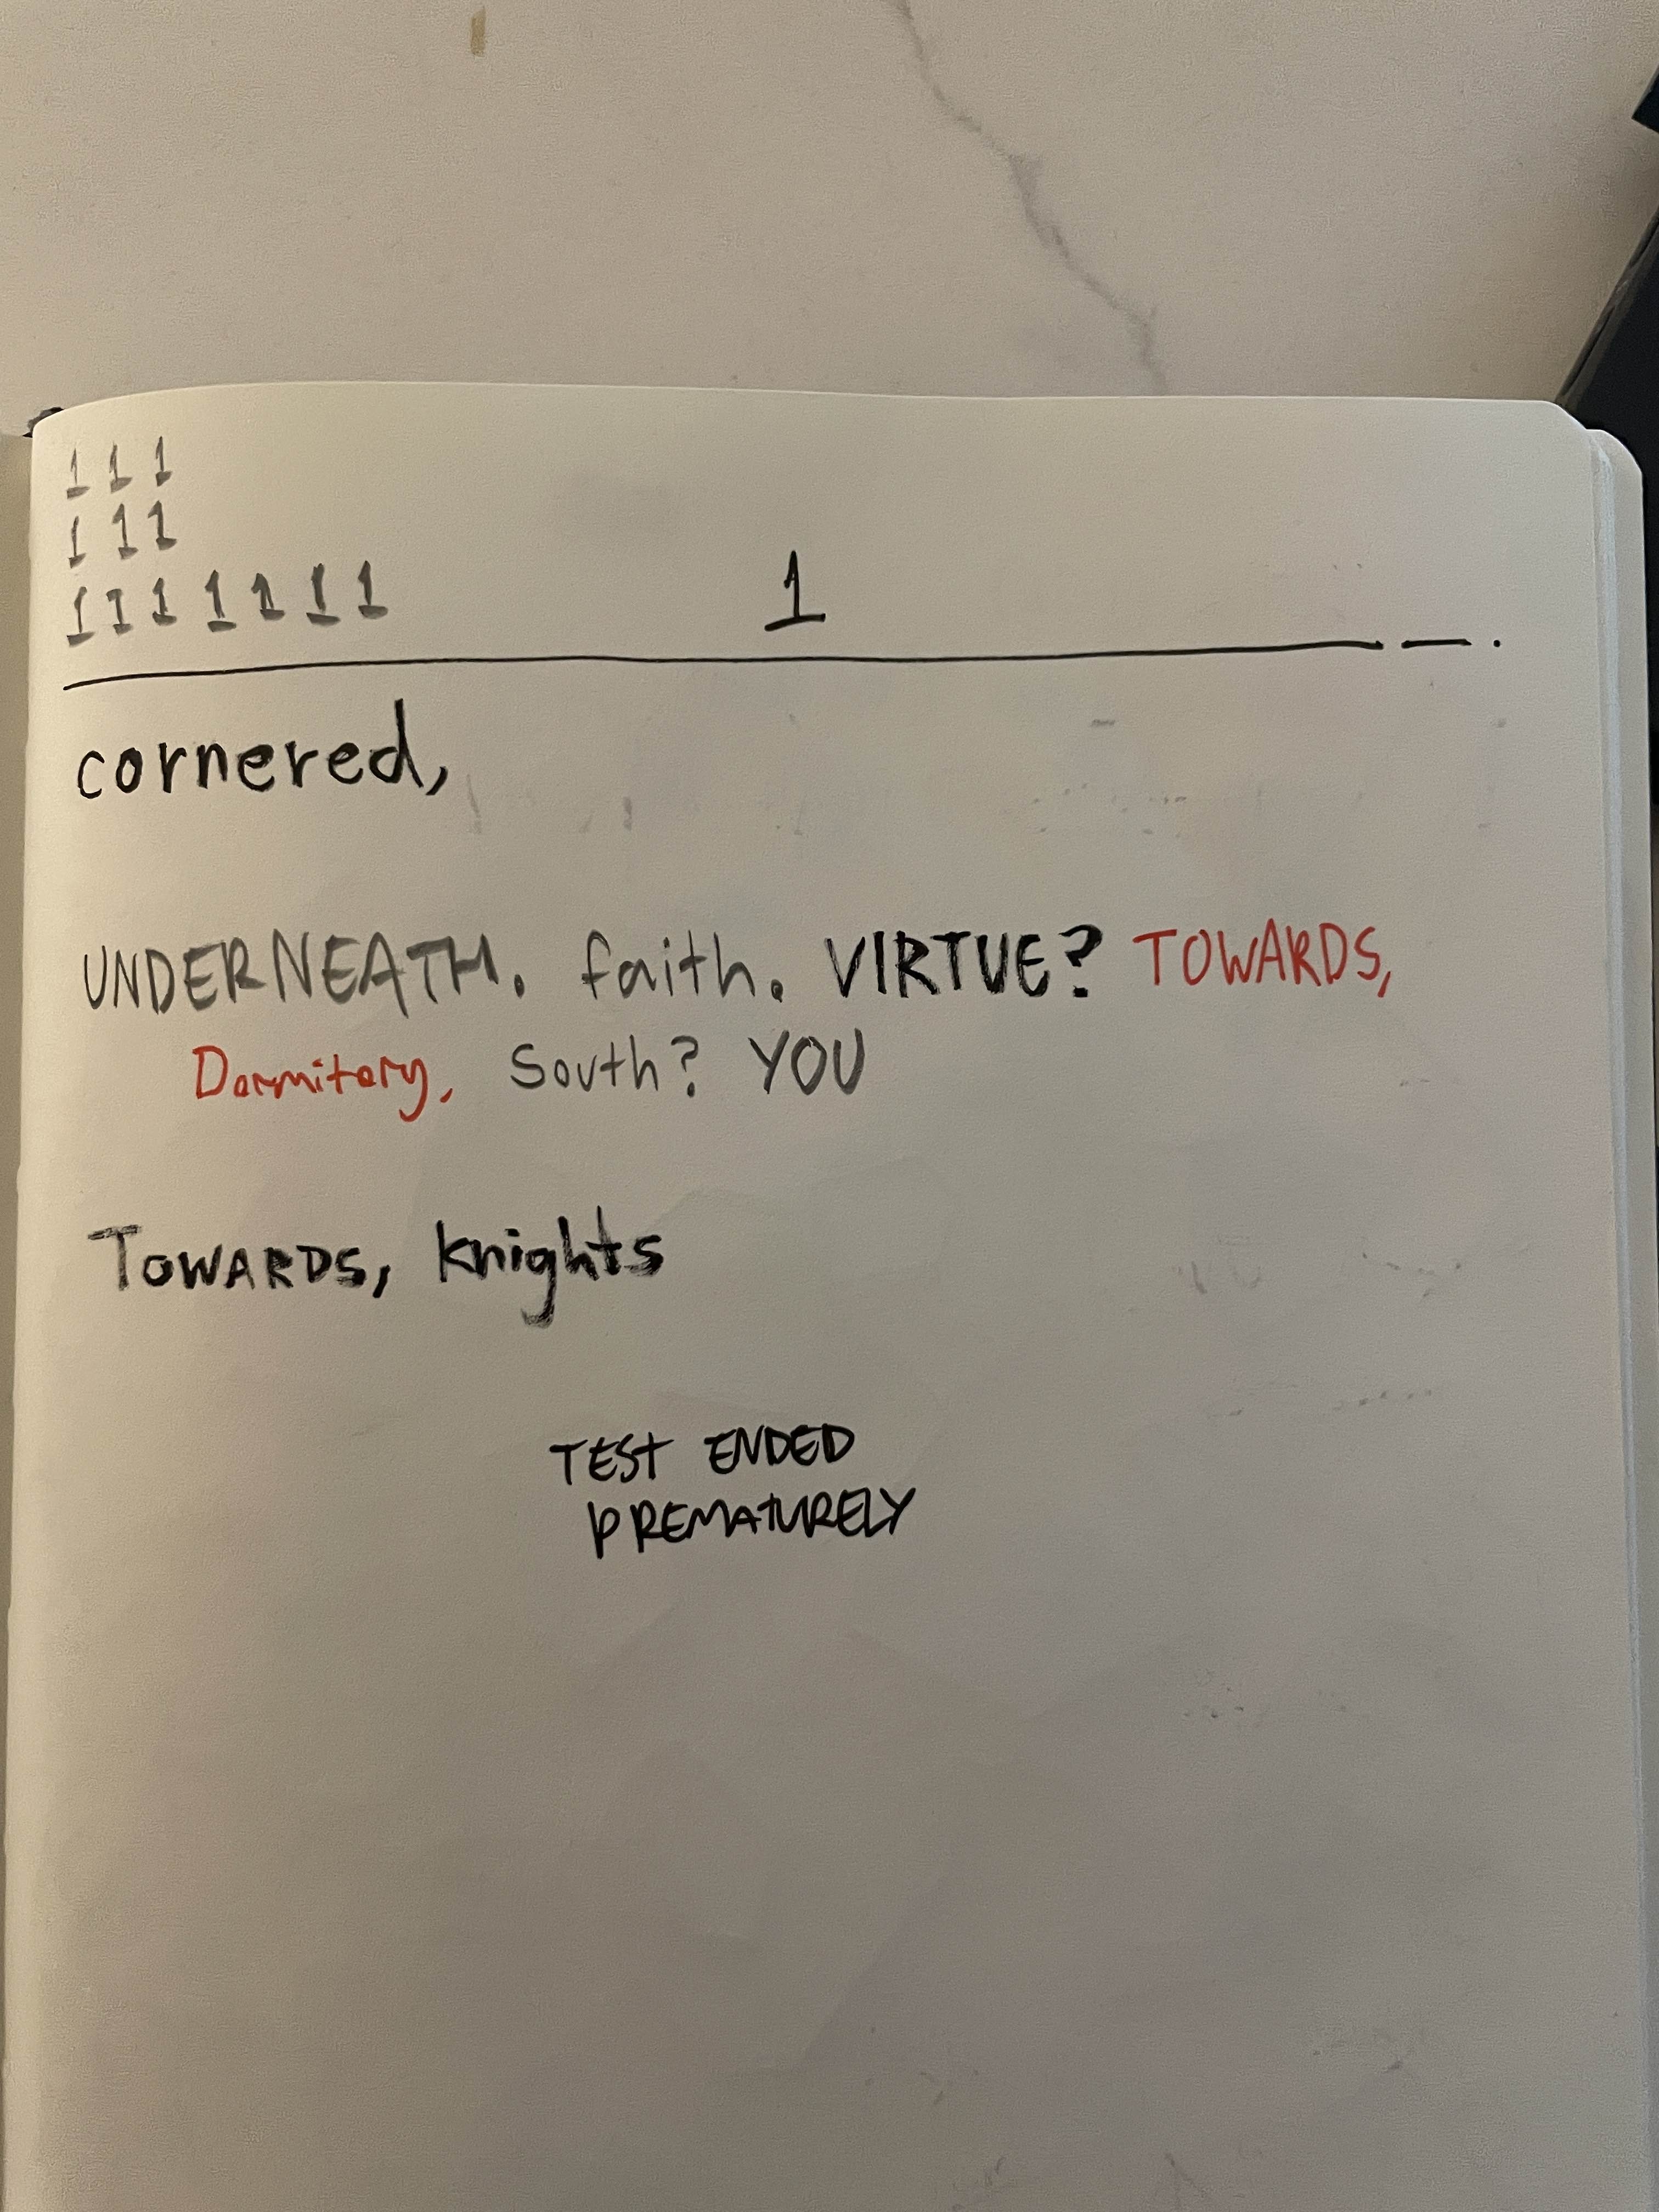 1 1 1
1 1 1
1 1 1 1 1 1 1 1
cornered,
UNDERNEATH. faith. VIRTUE? TOWARDS,
Dormitory, South? YOU
TOWARDS, knights
TEST ENDED
PREMATURELY